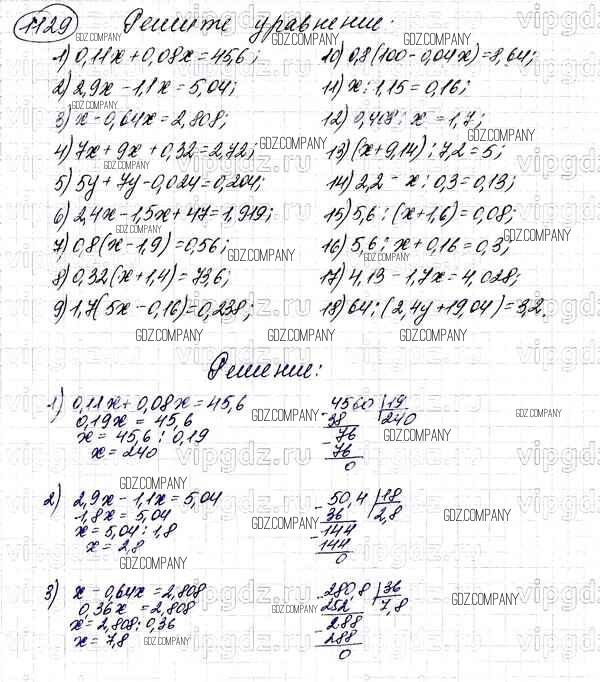 1129 Решите уравнение:
1) 0,11x + 0,08x = 45,6;
2) 2,9x - 1,1x = 5,04;
3) x - 0,64x = 2,808;
4) 7x + 9x + 0,32 = 2,72;
5) 5y + 7y - 0,024 = 0,204;
6) 2,4x - 1,5x + 47 = 1,919;
7) 0,8(x - 1,9) = 0,56;
8) 0,32(x + 1,4) = 73,6;
9) 1,7(5x - 0,16) = 0,238;
10) 0,8(100 - 0,04x) = 8,64;
11) x : 1,15 = 0,16;
12) 0,408 : x = 1,7;
13) (x + 9,14) : 7,2 = 5;
14) 2,2 - x : 0,3 = 0,13;
15) 5,6 : (x + 1,6) = 0,08;
16) 5,6 : x + 0,16 = 0,3;
17) 4,13 - 1,7x = 4,028;
18) 64 : (2,4y + 19,04) = 3,2.
Решение:
1) 0,11x + 0,08x = 45,6
0,19x = 45,6
x = 45,6 : 0,19
x = 240
4560 | 19
38 240
76
76
0
2) 2,9x - 1,1x = 5,04
1,8x = 5,04
x = 5,04 : 1,8
x = 2,8
50,4 | 18
36 2,8
144
144
0
3) x - 0,64x = 2,808
0,36x = 2,808
x = 2,808 : 0,36
x = 7,8
280,8 | 36
252 7,8
288
288
0
GDZ.COMPANY
vipgdz.ru